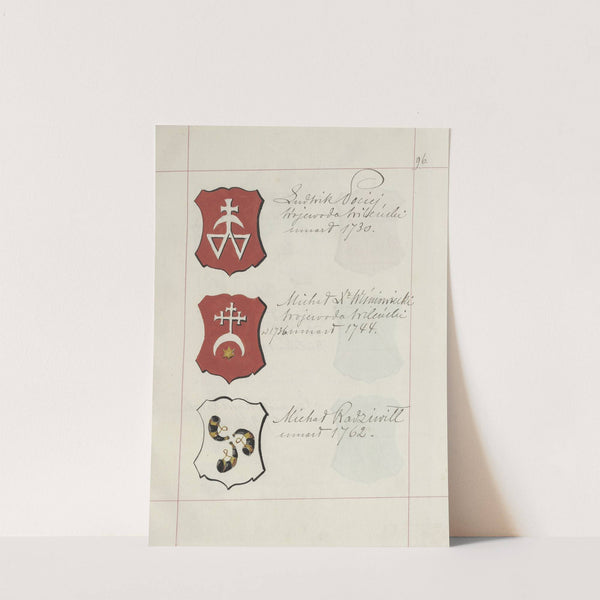 96.
Ludwik Pociej,
Wojewoda Wileński
umarł 1730.
Michał Xże Wiśniowiecki
Wojewoda Wileński
umarł 1744.
Michał Radziwiłł
umarł 1762.